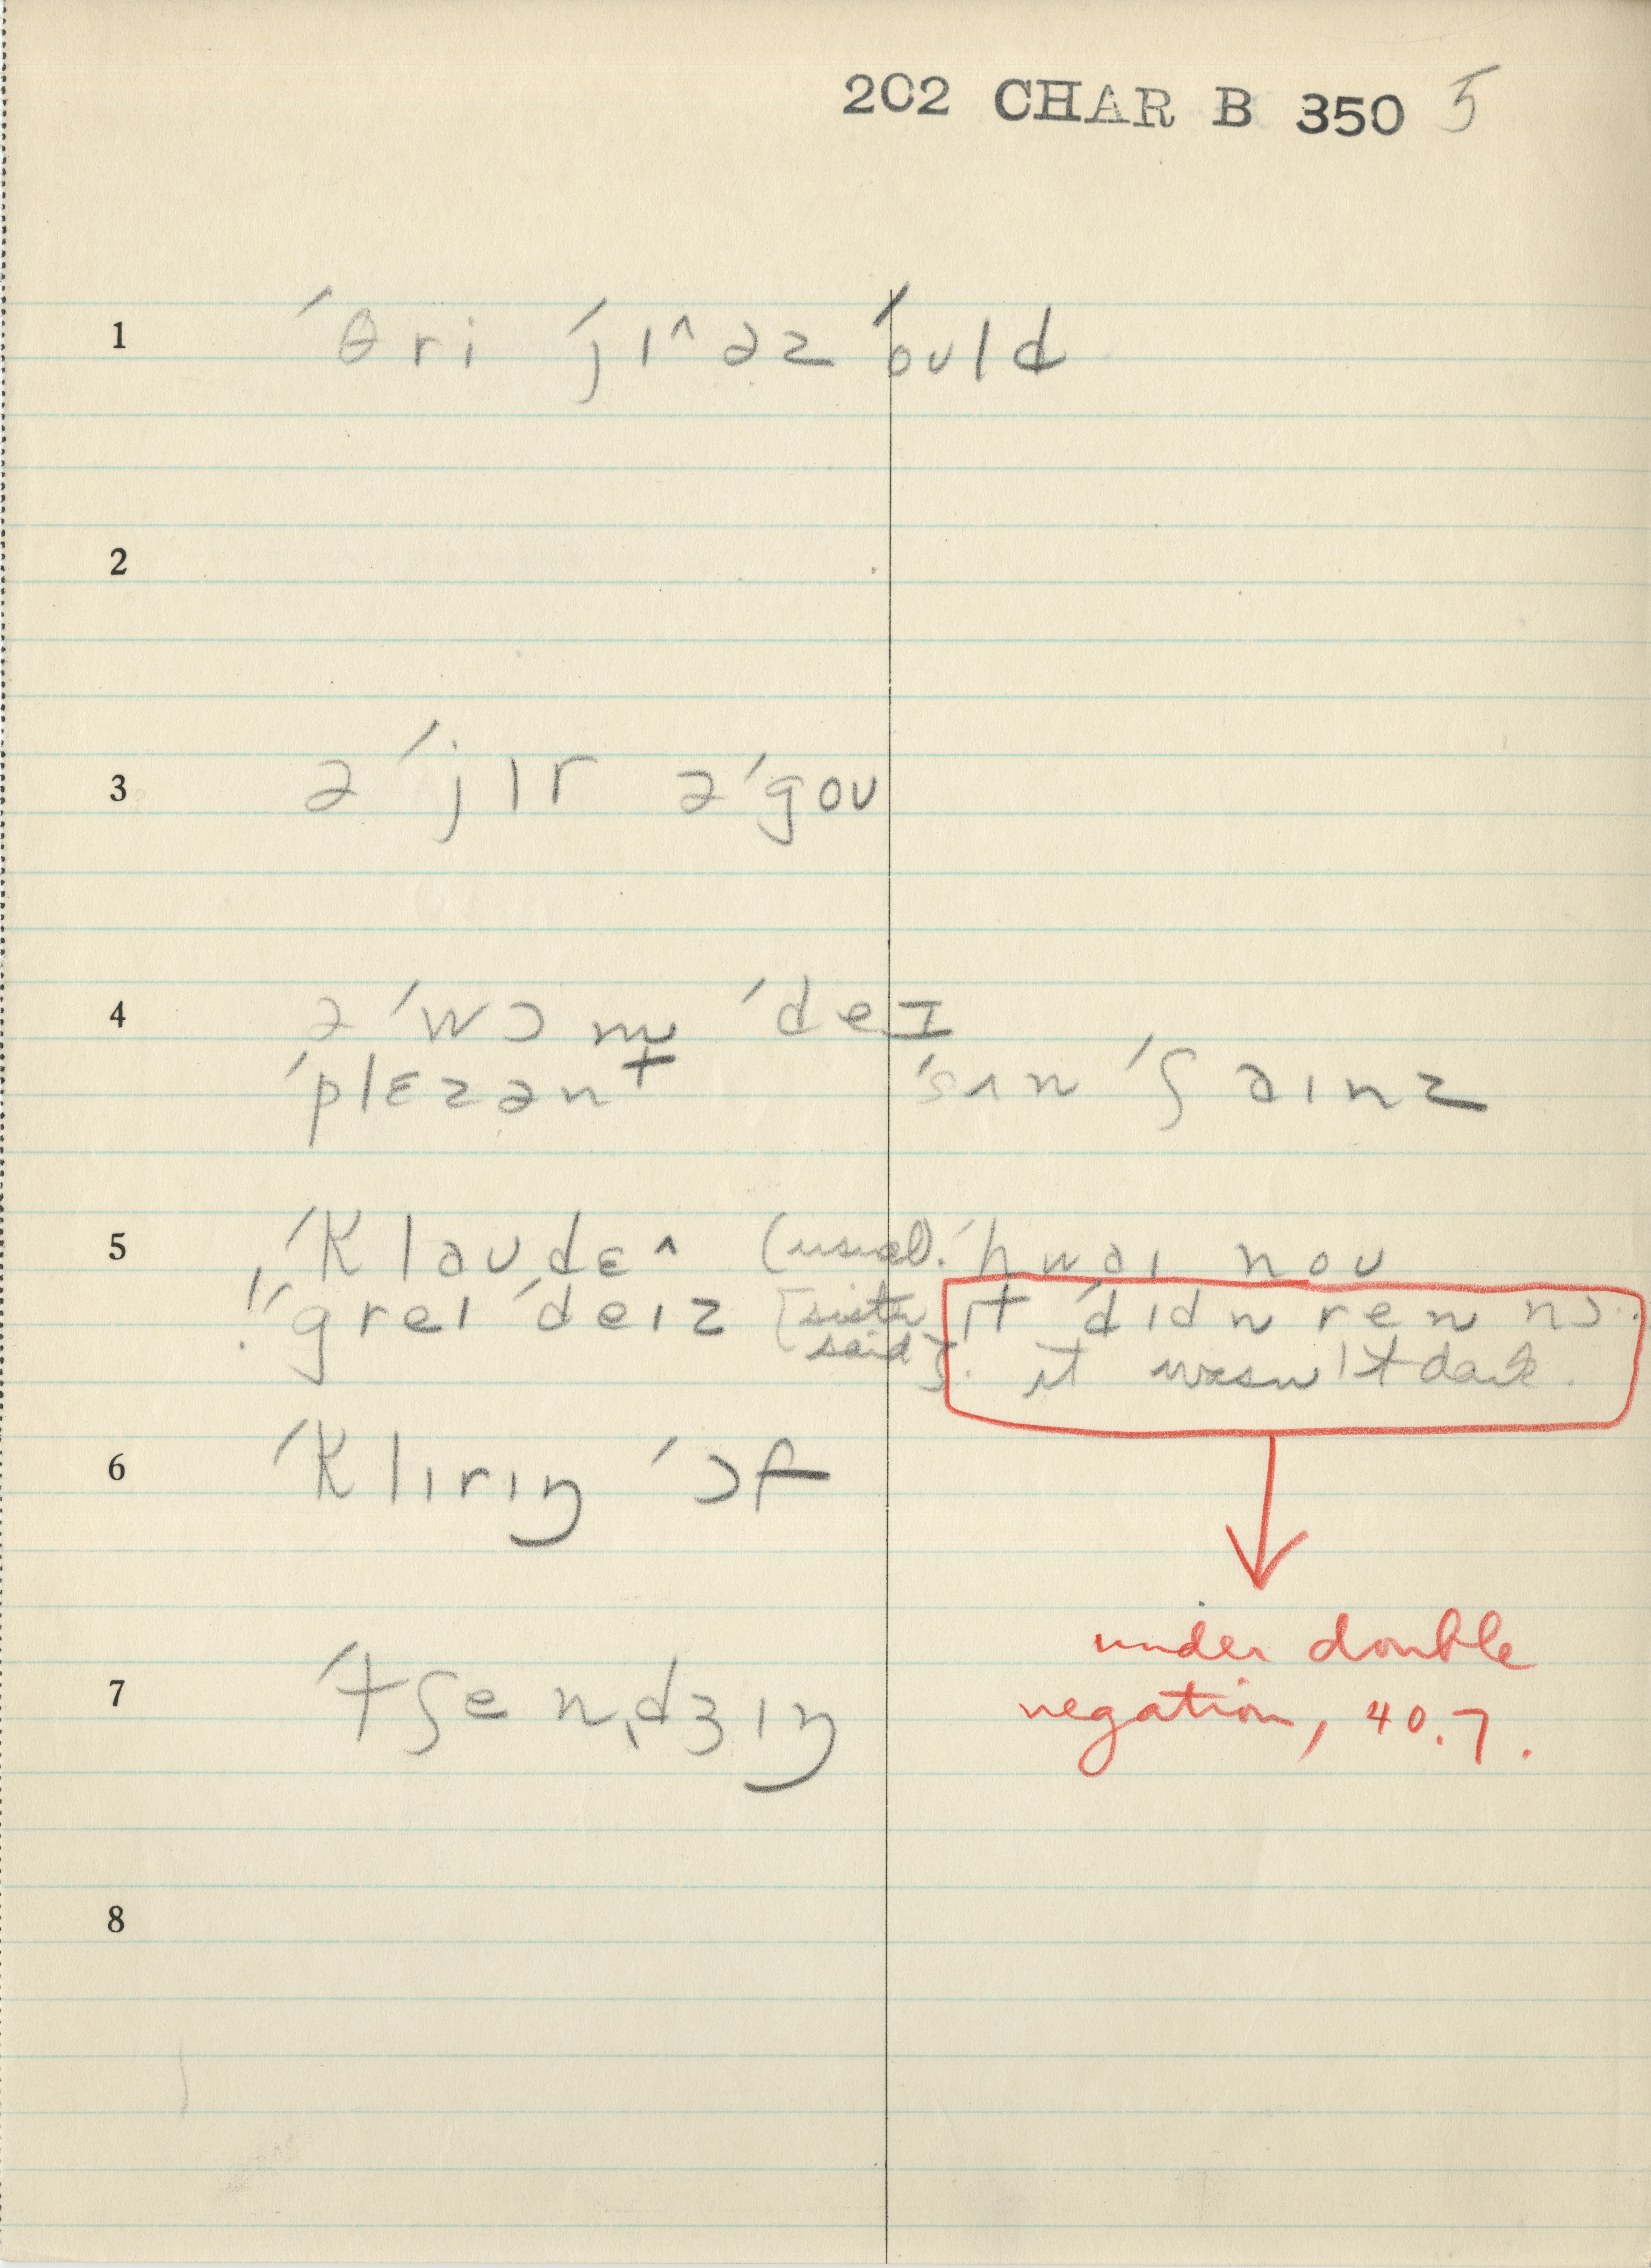 202 CHAR B 350 5
1 ´θri ´jɪ^əz ´ould
2
3 ə´jɪr ə´gou
4 ə´wɔm ´deɪ
´plɛzənt ´sʌn ´ʃaɪnz
5 ´klaudɛ^ (usual). ´hwaɪ nou
!´greɪ ´deɪz [sister said]. ɪt ´dɪdn ren nɔ..
it wasn't dark.
6 ´klɪrɪŋ ´ɔf
7 ´tʃenˌdʒɪŋ
under double
negation, 40.7.
8